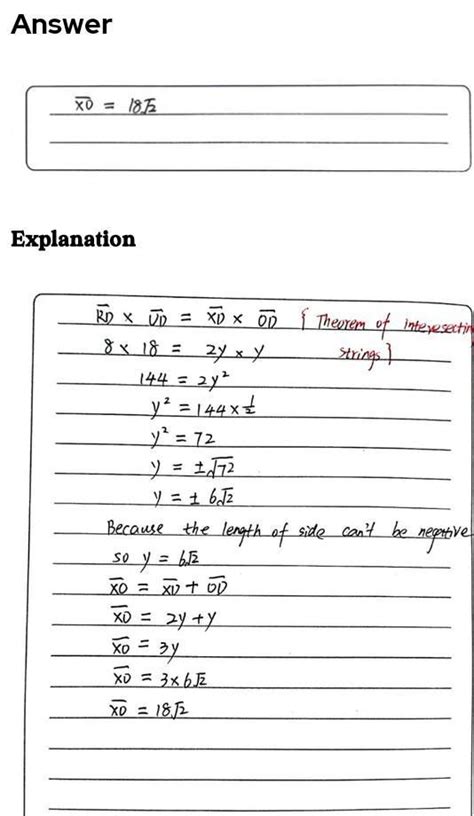 Answer
X̅O̅ = 18√2
Explanation
R̅D̅ × U̅D̅ = X̅D̅ × O̅D̅ { Theorem of intersecting
strings }
8 × 18 = 2y × y
144 = 2y²
y² = 144 × 1/2
y² = 72
y = ±√72
y = ± 6√2
Because the length of side can't be negative
so y = 6√2
X̅O̅ = X̅D̅ + O̅D̅
X̅O̅ = 2y + y
X̅O̅ = 3y
X̅O̅ = 3 × 6√2
X̅O̅ = 18√2